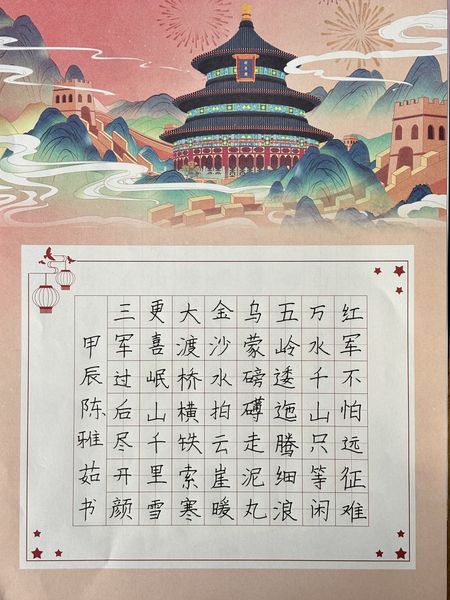 红军不怕远征难
万水千山只等闲
五岭逶迤腾细浪
乌蒙磅礴走泥丸
金沙水拍云崖暖
大渡桥横铁索寒
更喜岷山千里雪
三军过后尽开颜
甲辰陈雅茹书